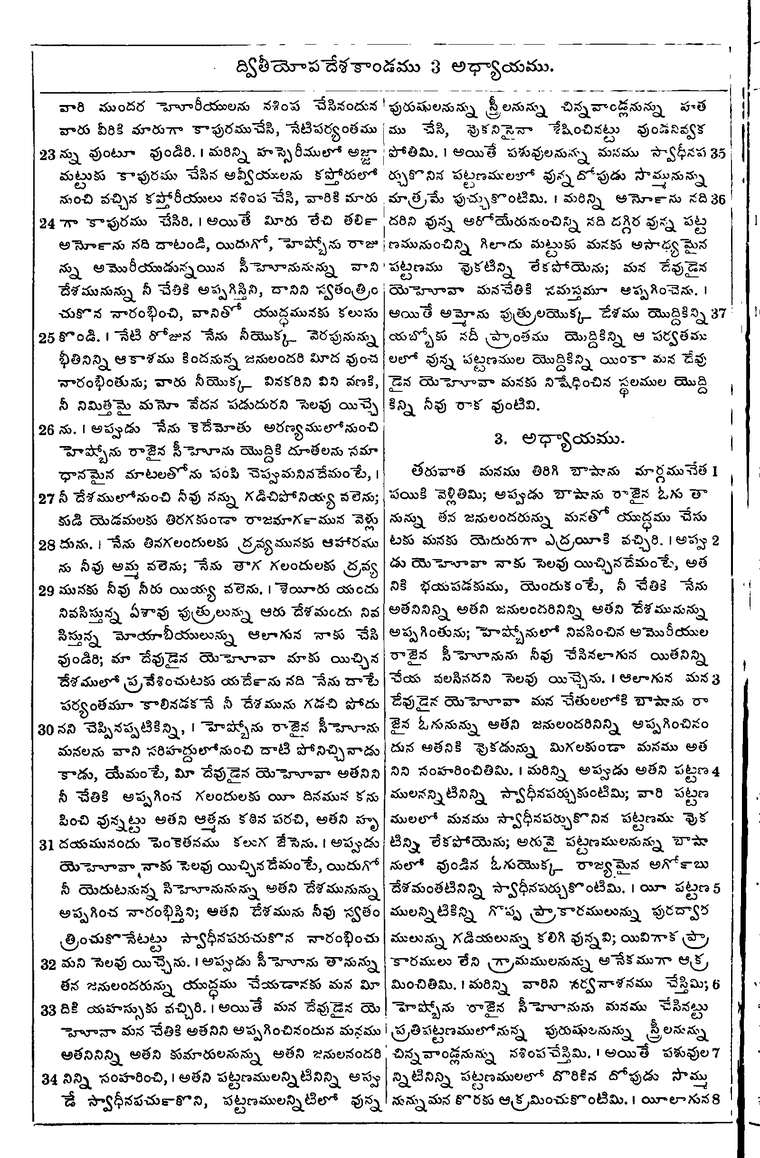 ద్వితీయోపదేశకాండము 3 అధ్యాయము.
వారి ముందర హెూరీయులను నశింప చేసినందున
వారు వీరికి మారుగా కాపురముచేసి, నేటిపర్యంతము
23 న్ను వుంటూ వుండిరి. । మరిన్ని హస్సెరీములో అజ్జా
మట్టుకు కాపురము చేసిన అవ్వీయులను కఫ్తోరులో
నుంచి వచ్చిన కఫ్తోరీయులు నశింప చేసి, వారికి మారు
24 గా కాపురము చేసిరి. । అయితే మీరు లేచి తర్లి
అర్నోను నది దాటండి, యిదుగో, హెష్బోను రాజు
న్ను అమోరీయుడున్నయిన సీహెూనునున్ను వాని
దేశమునున్ను నీ చేతికి అప్పగిస్తిని, దానిని స్వతంత్రిం
చుకొన నారంభించి, వానితో యుద్ధమునకు కలుసు
25 కొండి. । నేటి రోజున నేను నీయొక్క వెరపునున్ను
భీతినిన్ని ఆకాశము కిందనున్న జనులందరి మీద వుంచ
నారంభింతును; వారు నీయొక్క వినకరిని విని వణకి,
నీ నిమిత్తమై మనో వేదన పడుదురని సెలవు యిచ్చె
26 ను. । అప్పుడు నేను కెదేమోతు అరణ్యములోనుంచి
హెష్బోను రాజైన సీహెూను యొద్దికి దూతలను సమా
ధానమైన మాటలతోను పంపి చెప్పుమనినదేమంటే, ।
27 నీ దేశములోనుంచి నీవు నన్ను గడిచిపోనియ్య వలెను;
కుడి యెడమలకు తిరగకుండా రాజమార్గమున వెళ్లు
28 దును. । నేను తినగలందులకు ద్రవ్యమునకు ఆహారము
ను నీవు అమ్మ వలెను; నేను తాగ గలందులకు ద్రవ్య
29 మునకు నీవు నీరు యియ్య వలెను. । శెయీరు యందు
నివసిస్తున్న ఏశావు పుత్రులున్ను ఆరు దేశమందు నివ
సిస్తున్న మోయాబీయులున్ను ఆలాగున నాకు చేసి
వుండిరి; మా దేవుడైన యెహెూవా మాకు యిచ్చిన
దేశములో ప్రవేశించుటకు యర్దేను నది నేను దాటే
పర్యంతమూ కాలినడకనే నీ దేశమును గడచి పోదు
30 నని చెప్పినప్పటికిన్ని, । హెష్బోను రాజైన సీహెూను
మనలను వాని సరిహద్దులోనుంచి దాటి పోనిచ్చినాడు
కాడు, యేమంటే, మీ దేవుడైన యెహెూవా అతనిని
నీ చేతికి అప్పగించ గలందులకు యీ దినమున కను
పించి వున్నట్టు అతని ఆత్మను కఠిన పరచి, అతని హృ
31 దయమునందు పెంకెతనము కలుగ జేసెను. । అప్పుడు
యెహెూవా నాకు సెలవు యిచ్చినదేమంటే, యిదుగో
నీ యెదుటనున్న సీహెూనునున్ను అతని దేశమునున్ను
అప్పగించ నారంభిస్తిని; అతని దేశమును నీవు స్వతం
త్రించుకొనేటట్టు స్వాధీనపరుచుకొన నారంభించు
32 మని సెలవు యిచ్చెను. । అప్పుడు సీహెూను తానున్ను
తన జనులందరున్ను యుద్ధము చేయడానకు మన మీ
33 దికి యహస్సుకు వచ్చిరి. । అయితే మన దేవుడైన యె
హెూవా మన చేతికి అతనిని అప్పగించినందున మనము
అతనినిన్ని అతని కుమారులనున్ను అతని జనులనందరి
34 నిన్ని సంహరించి, । అతని పట్టణములన్నిటినిన్ని అప్పు
డే స్వాధీనపర్చుకొని, పట్టణములన్నిటిలో వున్న
పురుషులనున్ను స్త్రీలనున్ను చిన్నవాండ్లనున్ను హత
ము చేసి, వుకనినైనా శేషించినట్టు వుండనివ్వక
పోతిమి. । అయితే పశువులనున్ను మనము స్వాధీనప 35
ర్చుకొనిన పట్టణములలో వున్న దోపుడు సొమ్మునున్ను
మాత్రమే పుచ్చుకొంటిమి. । మరిన్ని అర్నోను నది 36
దరిని వున్న అరోయేరునుంచిన్ని నది దగ్గిర వున్న పట్ట
ణమునుంచిన్ని గిలాదు మట్టుకు మనకు అసాధ్యమైన
పట్టణము వుకటిన్ని లేకపోయెను; మన దేవుడైన
యెహెూవా మనచేతికి సమస్తమూ అప్పగించెను. ।
అయితే అమ్మోను పుత్రులయొక్క దేశము యొద్దికిన్ని 37
యబ్బోకు నదీ ప్రాంతము యొద్దికిన్ని ఆ పర్వతము
లలో వున్న పట్టణముల యొద్దికిన్ని యింకా మన దేవు
డైన యెహెూవా మనకు నిషేధించిన స్థలముల యొద్ది
కిన్ని నీవు రాక వుంటివి.
3. అధ్యాయము.
తరువాత మనము తిరిగి బాషాను మార్గముచేత 1
పయికి వెళ్లితిమి; అప్పుడు బాషాను రాజైన ఓగు తా
నున్ను తన జనులందరున్ను మనతో యుద్ధము చేసు
టకు మనకు యెదురుగా ఎద్రయీకి వచ్చిరి. । అప్పు 2
డు యెహెూవా నాకు సెలవు యిచ్చినదేమంటే, అత
నికి భయపడకుము, యెందుకంటే, నీ చేతికి నేను
అతనినిన్ని అతని జనులందరినిన్ని అతని దేశమునున్ను
అప్పగింతును; హెష్బోనులో నివసించిన అమోరీయుల
రాజైన సీహెూనును నీవు చేసినలాగున యితనిన్ని
చేయ వలసినదని సెలవు యిచ్చెను. । ఆలాగున మన 3
దేవుడైన యెహెూవా మన చేతులలోకి బాషాను రా
జైన ఓగునున్ను అతని జనులందరినిన్ని అప్పగించినం
దున అతనికి వుకడున్ను మిగలకుండా మనము అత
నిని సంహరించితిమి. । మరిన్ని అప్పుడు అతని పట్టణ 4
ములనన్నిటినిన్ని స్వాధీనపర్చుకుంటిమి; వారి పట్టణ
ములలో మనము స్వాధీనపర్చుకొనిన పట్టణము వుక
టిన్ని లేకపోయెను; అరువై పట్టణములనున్ను బాషా
నులో వుండిన ఓగుయొక్క రాజ్యమైన అర్గోబు
దేశమంతటినిన్ని స్వాధీనపర్చుకొంటిమి. । యీ పట్టణ 5
ములన్నిటికిన్ని గొప్ప ప్రాకారములున్ను పురద్వార
ములున్ను గడియలున్ను కలిగి వున్నవి; యివిగాక ప్రా
కారములు లేని గ్రామములనున్ను అనేకముగా ఆక్ర
మించితిమి. । మరిన్ని వారిని సర్వనాశనము చేస్తిమి; 6
హెష్బోను రాజైన సీహెూనును మనము చేసినట్టు
ప్రతిపట్టణములోనున్న పురుషులనున్ను స్త్రీలనున్ను
చిన్నవాండ్లనున్ను నశింపచేస్తిమి. । అయితే పశువుల 7
న్నిటినిన్ని పట్టణములలో దొరికిన దోపుడు సొమ్ము
నున్ను మన కొరకు ఆక్రమించుకొంటిమి. । యీలాగున 8